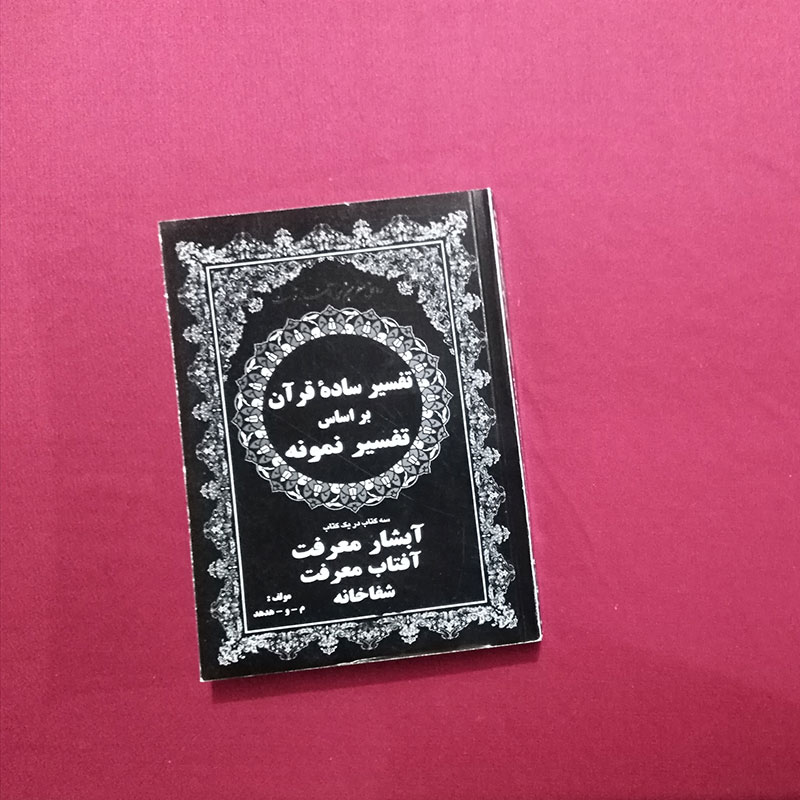 تفسیر سادهٔ قرآن
بر اساس
تفسیر نمونه
سه کتاب در یک کتاب
آبشار معرفت
آفتاب معرفت
شفاخانه
مولف :
م - و - هدهد